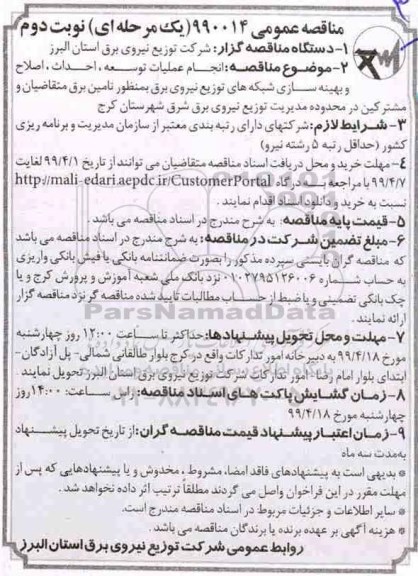 مناقصه عمومی ۹۹۰۰۱۴ (یک مرحله ای) نوبت دوم
۱- دستگاه مناقصه گزار: شرکت توزیع نیروی برق استان البرز
۲- موضوع مناقصه: انجام عملیات توسعه، احداث، اصلاح
و بهینه سازی شبکه های توزیع نیروی برق بمنظور تامین برق متقاضیان و
مشترکین در محدوده مدیریت توزیع نیروی برق شرق شهرستان کرج
۳- شرایط لازم: شرکتهای دارای رتبه بندی معتبر از سازمان مدیریت و برنامه ریزی
کشور (حداقل رتبه ۵ رشته نیرو)
۴- مهلت خرید و محل دریافت اسناد مناقصه متقاضیان می توانند از تاریخ ۹۹/۴/۱ لغایت
۹۹/۴/۷ با مراجعه به درگاه http://mali-edari.aepdc.ir/CustomerPortal
نسبت به خرید و دانلود اسناد اقدام نمایند.
۵- قیمت پایه مناقصه: به شرح مندرج در اسناد مناقصه می باشد.
۶- مبلغ تضمین شرکت در مناقصه: به شرح مندرج در اسناد مناقصه می باشد
که مناقصه گران بایستی سپرده مذکور را بصورت ضمانتنامه بانکی یا فیش بانکی واریزی
به حساب شماره ۰۱۰۲۷۹۵۱۲۶۰۰۶ نزد بانک ملی شعبه آموزش و پرورش کرج و یا
چک بانکی تضمینی و یا ضبط از حساب مطالبات تایید شده مناقصه گر نزد مناقصه گزار
ارائه نمایند.
ParsNamadData
۷- مهلت و محل تحویل پیشنهادها: حداکثر تا ساعت ۱۲:۰۰ روز چهارشنبه
مورخ ۹۹/۴/۱۸ به دبیرخانه امور تدارکات واقع در: کرج بلوار طالقانی شمالی- پل آزادگان-
ابتدای بلوار امام رضا- امور تدارکات شرکت توزیع نیروی برق استان البرز تحویل نمایند.
۸- زمان گشایش پاکت های اسناد مناقصه: راس ساعت: ۱۴:۰۰ روز
چهارشنبه مورخ ۹۹/۴/۱۸
۹- زمان اعتبار پیشنهاد قیمت مناقصه گران: از تاریخ تحویل پیشنهاد
به مدت سه ماه
* بدیهی است به پیشنهادهای فاقد امضا، مشروط، مخدوش و یا پیشنهادهایی که پس از
مهلت مقرر در این فراخوان واصل می گردند مطلقاً ترتیب اثر داده نخواهد شد.
* سایر اطلاعات و جزئیات مربوط در اسناد مناقصه مندرج است.
* هزینه آگهی بر عهده برنده یا برندگان مناقصه می باشد.
روابط عمومی شرکت توزیع نیروی برق استان البرز